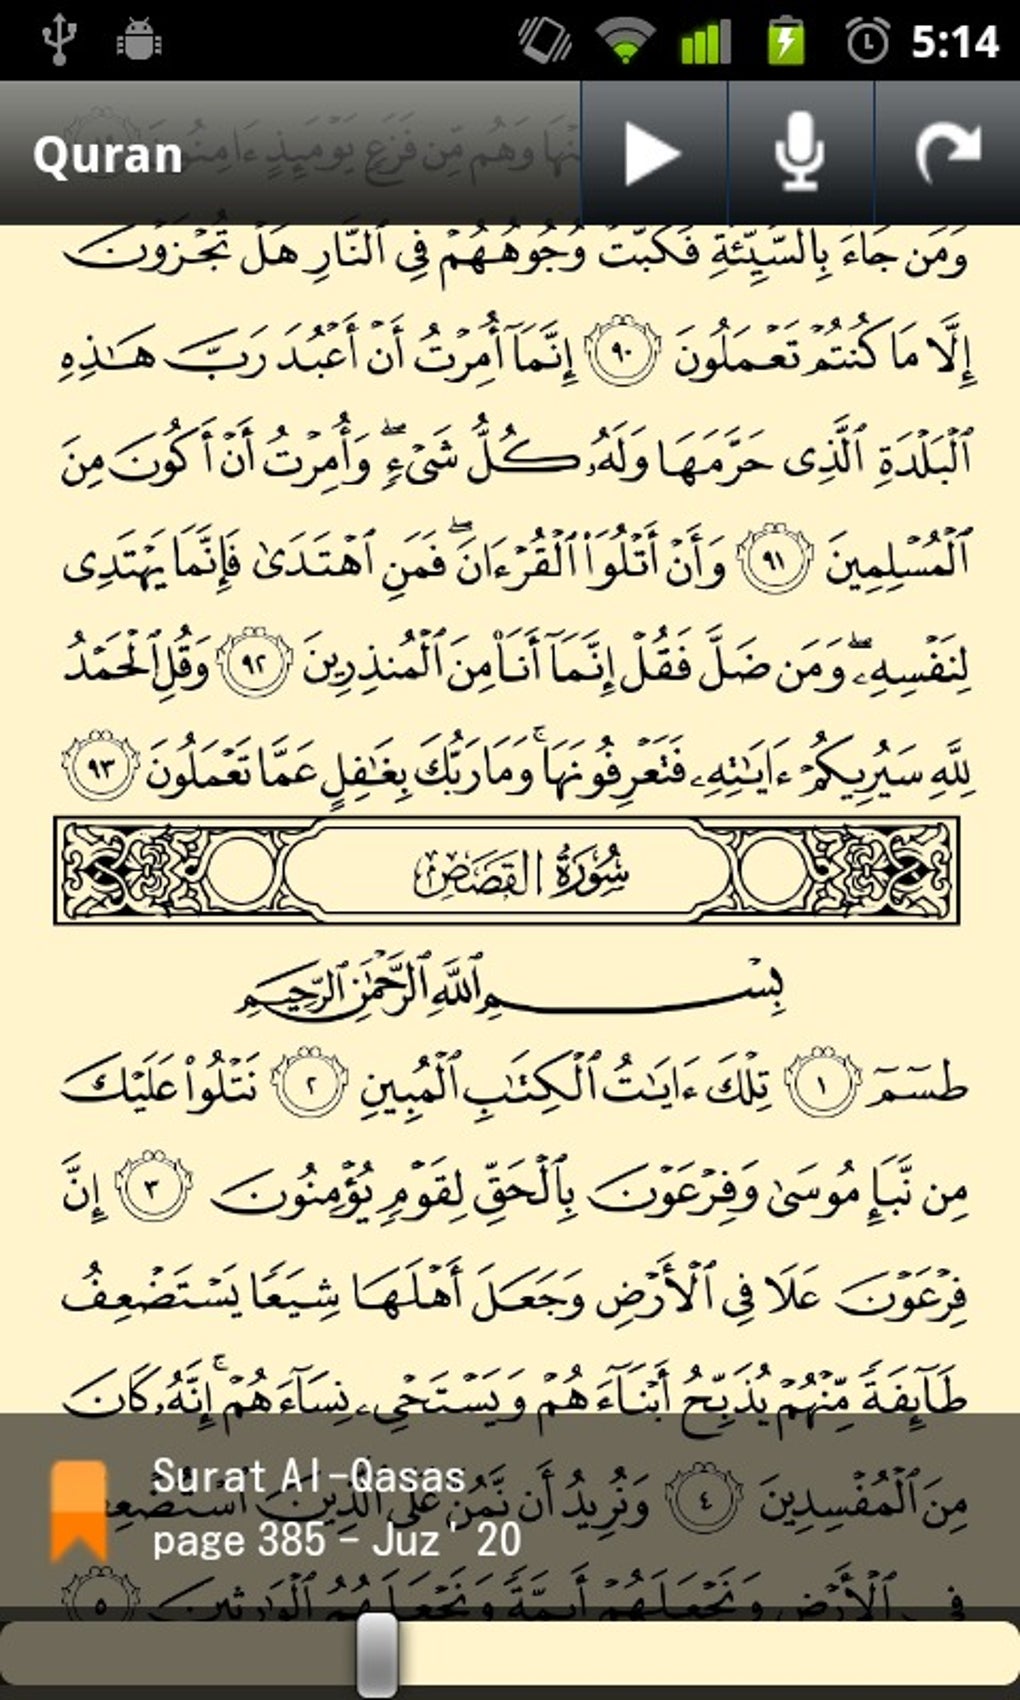 5:14
Quran
نْهَا وَهُم مِّن فَزَعٍ يَوْمَئِذٍ ءَامِنُونَ ٨٩
وَمَن جَآءَ بِٱلسَّيِّئَةِ فَكُبَّتْ وُجُوهُهُمْ فِى ٱلنَّارِ هَلْ تُجْزَوْنَ
إِلَّا مَا كُنتُمْ تَعْمَلُونَ ٩٠ إِنَّمَآ أُمِرْتُ أَنْ أَعْبُدَ رَبَّ هَـٰذِهِ
ٱلْبَلْدَةِ ٱلَّذِى حَرَّمَهَا وَلَهُۥ كُلُّ شَىْءٍ ۖ وَأُمِرْتُ أَنْ أَكُونَ مِنَ
ٱلْمُسْلِمِينَ ٩١ وَأَنْ أَتْلُوَا۟ ٱلْقُرْءَانَ ۖ فَمَنِ ٱهْتَدَىٰ فَإِنَّمَا يَهْتَدِى
لِنَفْسِهِۦ ۖ وَمَن ضَلَّ فَقُلْ إِنَّمَآ أَنَا۠ مِنَ ٱلْمُنذِرِينَ ٩٢ وَقُلِ ٱلْحَمْدُ
لِلَّهِ سَيُرِيكُمْ ءَايَـٰتِهِۦ فَتَعْرِفُونَهَا ۚ وَمَا رَبُّكَ بِغَـٰفِلٍ عَمَّا تَعْمَلُونَ ٩٣
سُورَةُ القَصَصِ
بِسْمِ ٱللَّهِ ٱلرَّحْمَـٰنِ ٱلرَّحِيمِ
طسٓمٓ ١ تِلْكَ ءَايَـٰتُ ٱلْكِتَـٰبِ ٱلْمُبِينِ ٢ نَتْلُوا۟ عَلَيْكَ
مِن نَّبَإِ مُوسَىٰ وَفِرْعَوْنَ بِٱلْحَقِّ لِقَوْمٍ يُؤْمِنُونَ ٣ إِنَّ
فِرْعَوْنَ عَلَا فِى ٱلْأَرْضِ وَجَعَلَ أَهْلَهَا شِيَعًا يَسْتَضْعِفُ
طَآئِفَةً مِّنْهُمْ يُذَبِّحُ أَبْنَآءَهُمْ وَيَسْتَحْىِۦ نِسَآءَهُمْ ۚ إِنَّهُۥ كَانَ
مِنَ ٱلْمُفْسِدِينَ ٤ وَنُرِيدُ أَن نَّمُنَّ عَلَى ٱلَّذِينَ ٱسْتُضْعِفُ
فِى ٱلْأَرْضِ وَنَجْعَلَهُمْ أَئِمَّةً وَنَجْعَلَهُمُ ٱلْوَٰرِثِينَ ٥
Surat Al-Qasas
page 385 - Juz' 20